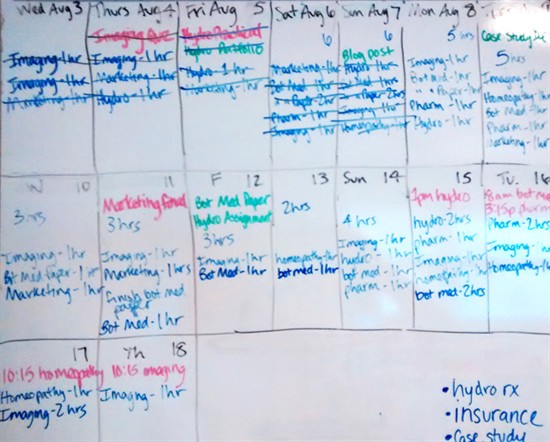 Wed Aug 3
Imaging-1hr
Imaging-1hr
Marketing-1hr
Thurs Aug 4
Imaging Quiz
Imaging-1hr
Marketing-1hr
Hydro-1hr
Fri Aug 5
Hydro Practical
Hydro Portfolio
Hydro-1hr
Marketing-1hr
Sat Aug 6
6
Marketing-1hr
Bot Med 1hr
" " Paper-2hr
Pharm-1hr
Imaging-1hr
Sun Aug 7
6
Blog post
Hydro 1hr
Bot Med 1hr
" " Paper-2hrs
Imaging 1hr
Homeopathy-1hr
Mon Aug 8
5 hrs
Imaging-1hr
Bot Med-1hr
" " Paper-1hr
Pharm-1hr
Hydro-1hr
Case Study
5hrs
Imaging-1hr
Homeopathy-1hr
Bot Med
Pharm-1hr
Marketing-1hr
W 10
3hrs
Imaging-1hr
Bot Med Paper-1hr
Marketing-1hr
11
Marketing final
3hrs
Imaging-1hr
Marketing-1hrs
finish bot med
paper
Bot Med-1hr
F 12
Bot Med Paper
Hydro Assignment
3hrs
Imaging-1hr
Bot Med-1hr
13
2hrs
homeopathy-1hr
bot med-1hr
Sun 14
4hrs
Imaging-1hr
hydro-1hr
bot med-1hr
pharm-1hr
15
1pm hydro
hydro-2hrs
pharm-1hr
Imaging-1hr
homeopathy-1hr
bot med-2hrs
Tu. 16
8am bot med
3:15p pharm
Pharm-2hrs
Imaging-1hr
Homeopathy-1hr
17
10:15 homeopathy
Homeopathy-1hr
Imaging-2hrs
Th 18
10:15 imaging
Imaging-1hr
• hydro rx
• insurance
• Case study